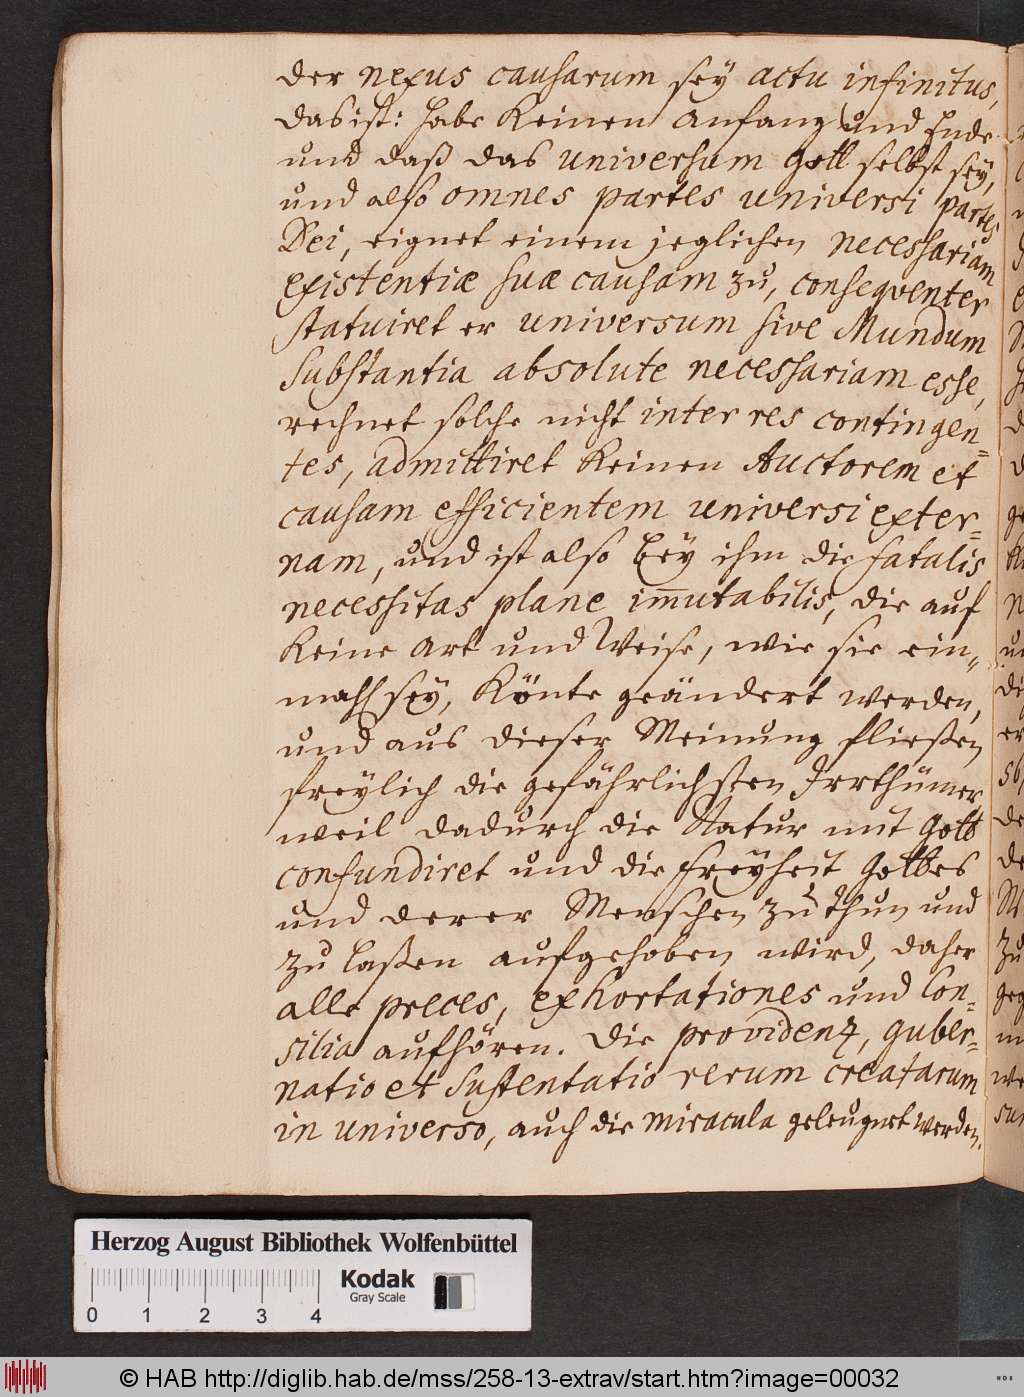 der nexus causarum sey actu infinitus,
das ist: habe keinen Anfang und Ende
und daß das universum Gott selbst sey,
und also omnes partes universi partes
Dei, eignet einem jeglichen necessariam
existentiæ suæ causam zu, consequenter
statuiret er universum sive Mundum
substantia absolute necessariam esse,
rechnet solche nicht inter res contingen=
tes, admittiret keinen Auctorem et
causam efficientem universi exter=
nam, und ist also bey ihm die fatalis
necessitas plane im̅utabilis, die auf
keine Art und Weise, wie sie ein=
mahl sey, könte geändert werden,
und aus dieser Meinung fließen
freylich die gefährlichsten Irrthümer
weil dadurch die Natur mit Gott
confundiret und die Freyheit Gottes
und derer Menschen zu thun und
zu laßen aufgehoben wird, daher
alle preces, exhortationes und Con=
silia aufhören. Die providenz, guber=
natio et sustentatio rerum creatarum
in universo, auch die miracula geleugnet werden.
Herzog August Bibliothek Wolfenbüttel
Kodak
Gray Scale
0 1 2 3 4
© HAB http://diglib.hab.de/mss/258-13-extrav/start.htm?image=00032